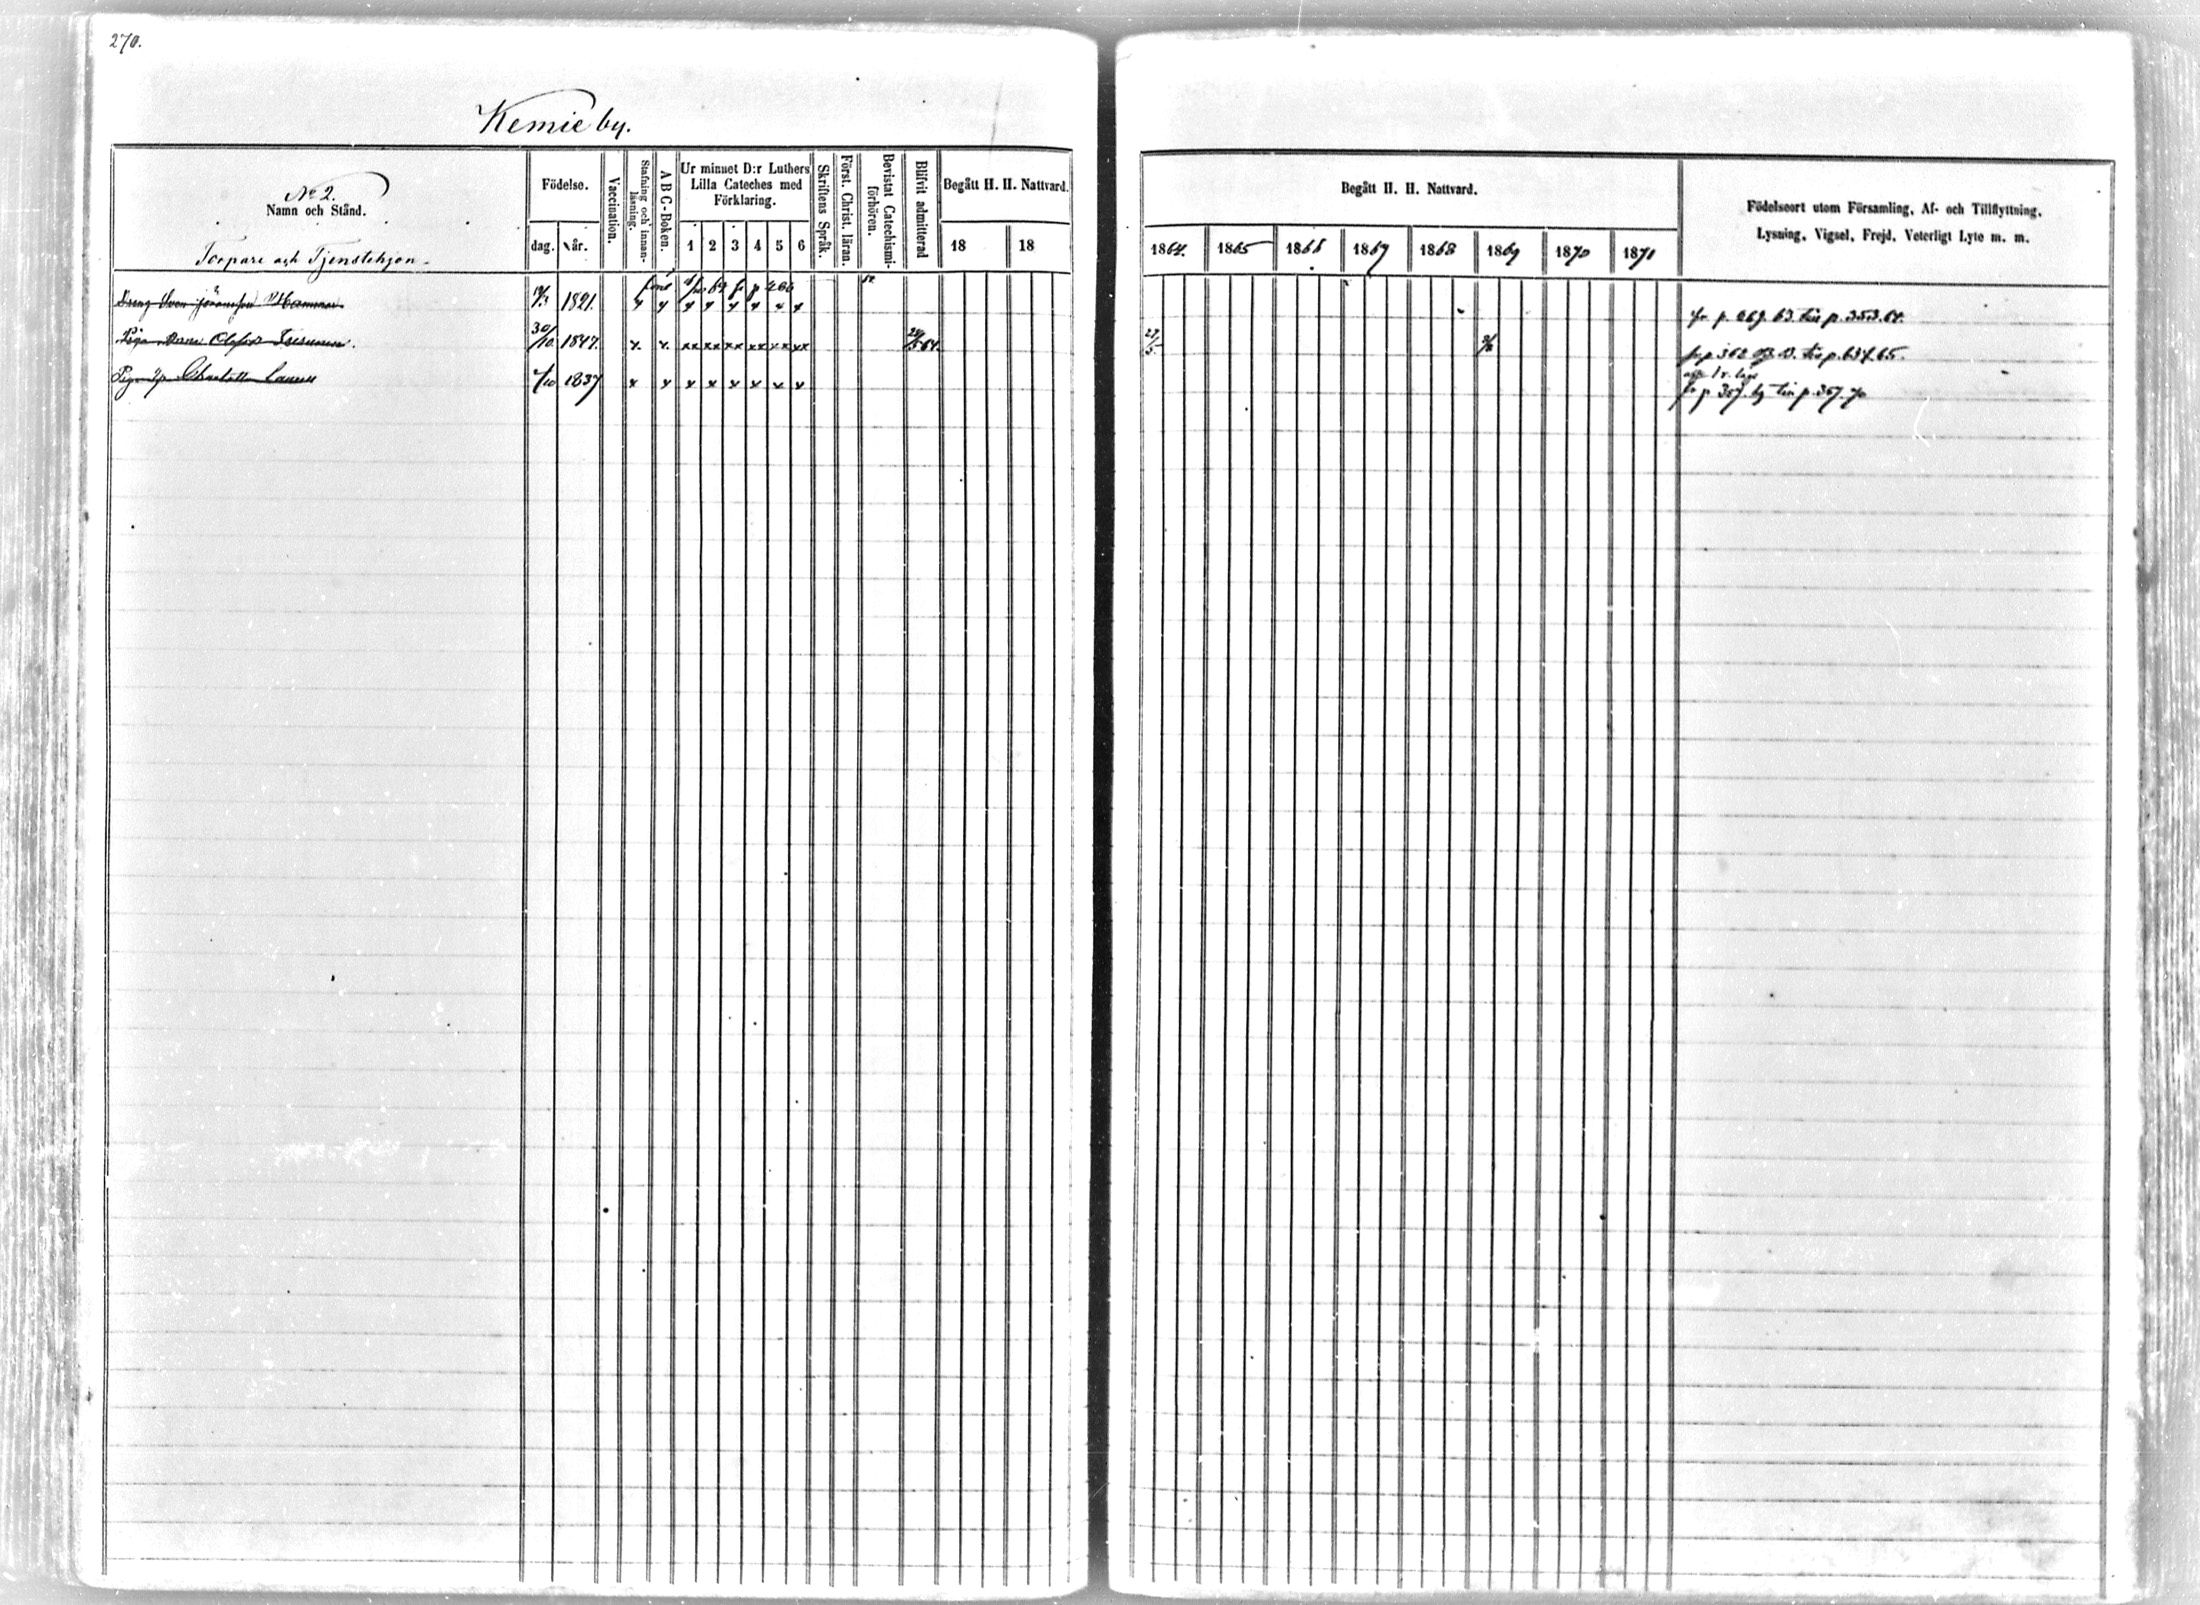 270.
Kemie by.
No 2.
Namn och Stånd.
Torpare och Tjenstehjon.
Födelse.
dag.
år.
Vaccination.
Stafning och innan-
läsning.
A B C-Boken.
Ur minnet D:r Luthers
Lilla Cateches med
Förklaring.
1 2 3 4 5 6
Skriftens Språk.
Först. Christ. läran.
Bevistat Catechismi-
förhören.
Blifvit admitterad
Begått H. H. Nattvard.
18 18
Begått H. H. Nattvard.
1864. 1865 1866 1867 1868 1869 1870 1871
Födelseort utom Församling, Af- och Tillflyttning,
Lysning, Vigsel, Frejd, Veterligt Lyte m. m.
Dreng Sven Hammar 1821. x x x x x x x x
fr p. 269. 63. till p. 353. 64.
Piga Olofsd. 30/10 1847. x. x. xx xx xx xx xx xx
fr p 362 till p. 634. 65.
Piga Charlotta 1837 x x x x x x x x
fr p 357. till p. 367. 70